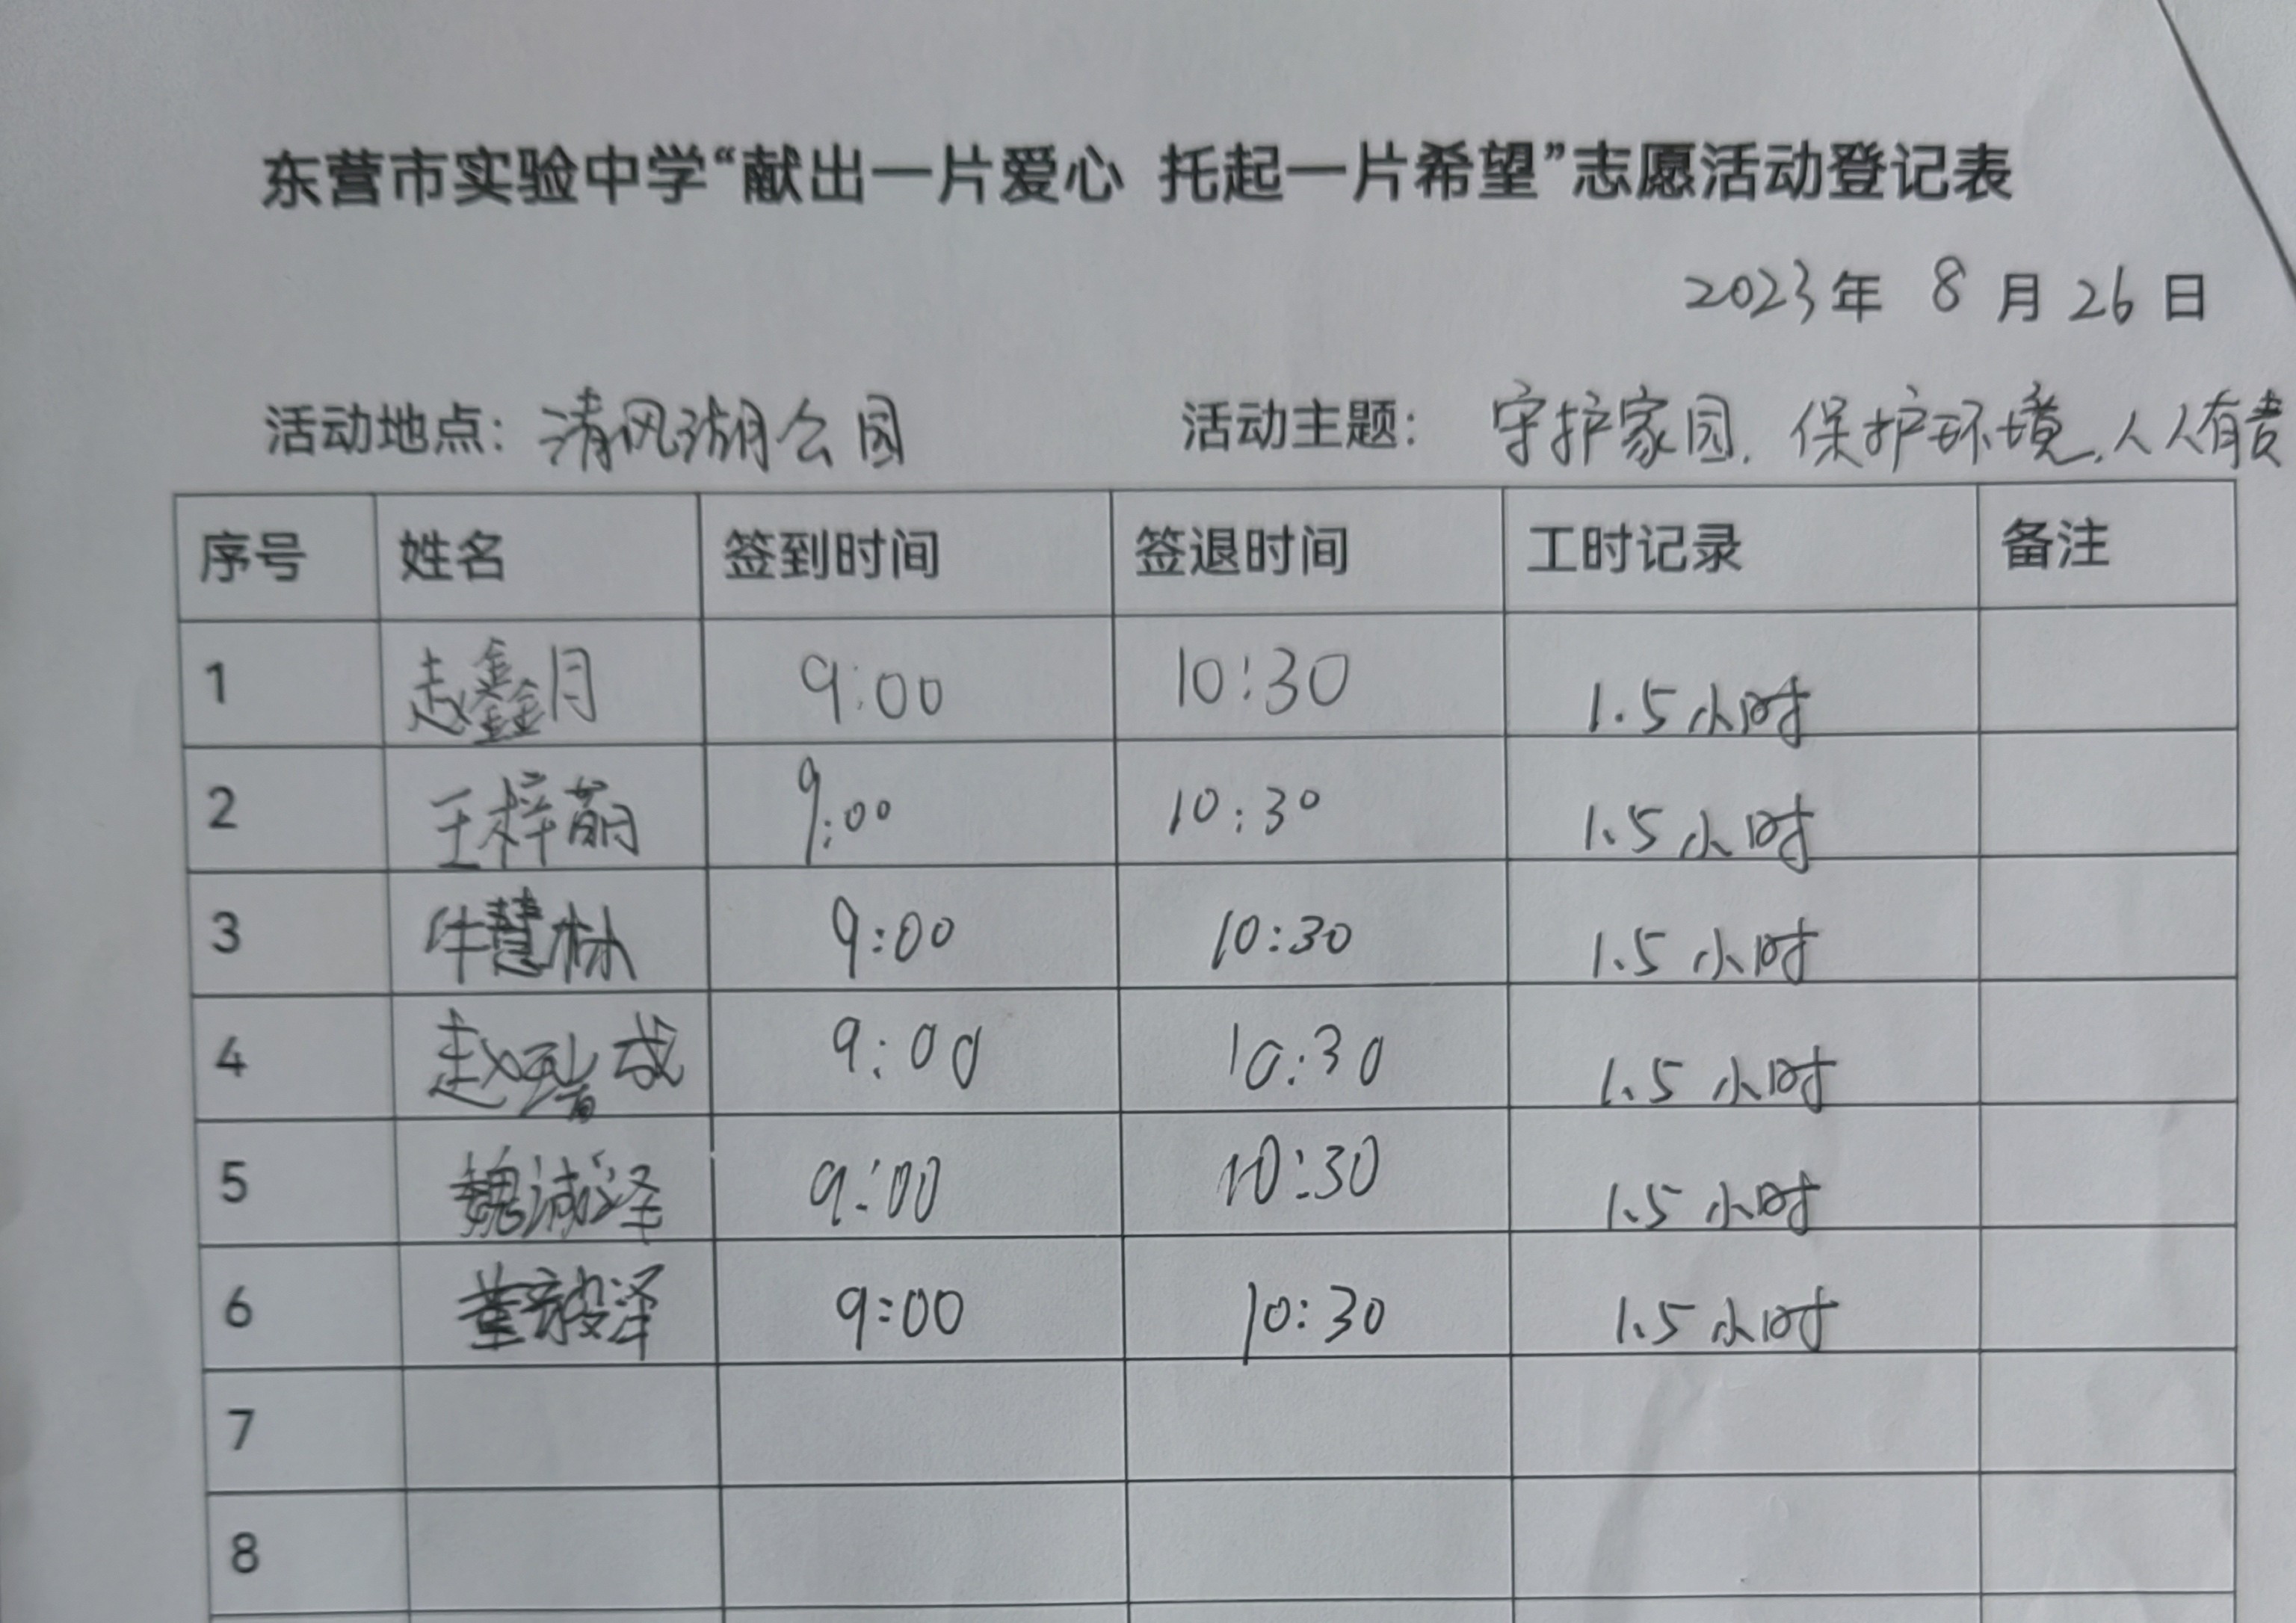 东营市实验中学“献出一片爱心 托起一片希望”志愿活动登记表
2023年 8 月 26 日
活动地点：清风湖公园 活动主题：守护家园.保护环境.人人有责
序号 姓名 签到时间 签退时间 工时记录 备注
1 赵鑫月 9:00 10:30 1.5小时
2 王梓萌 9:00 10:30 1.5小时
3 牛慧林 9:00 10:30 1.5小时
4 赵 成 9:00 10:30 1.5小时
5 魏诚泽 9:00 10:30 1.5小时
6 董毅泽 9:00 10:30 1.5小时
7
8